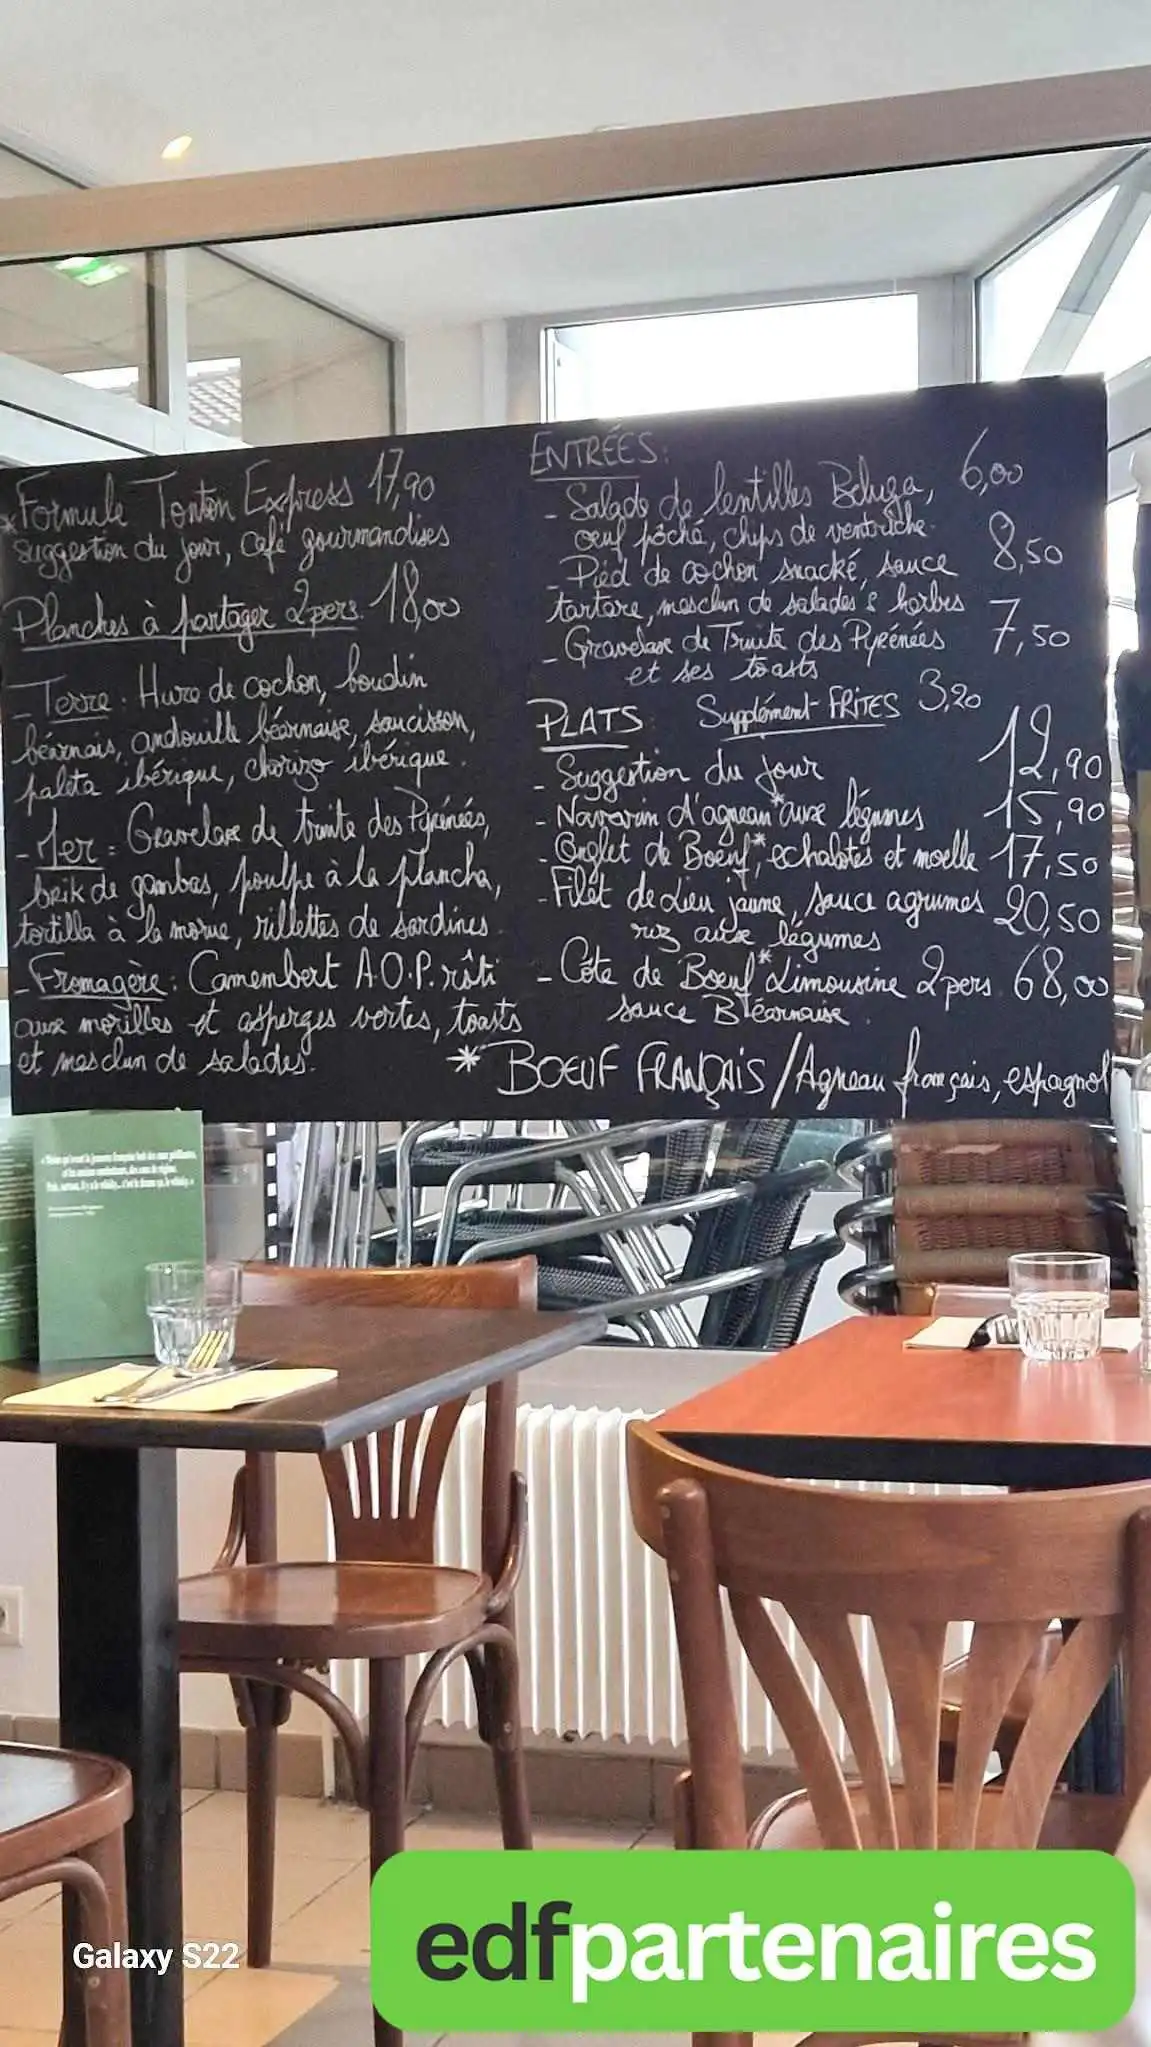 * Formule Tonton Express 17,90
Suggestion du jour, café gourmandises
Planches à partager 2 pers. 18,00
- Terre : Hure de cochon, boudin
béarnais, andouille béarnaise, saucisson,
paleta ibérique, chorizo ibérique.
- Mer : Gravelax de truite des Pyrénées,
brik de gambas, poulpe à la plancha,
tortilla à la morue, rillettes de sardines.
- Fromagère : Camembert A.O.P. rôti
aux morilles et asperges vertes, toasts
et mesclun de salades.
ENTRÉES :
- Salade de lentilles Beluga, 6,00
oeuf pôché, chips de ventrèche.
- Pied de cochon snacké, sauce 8,50
tartare, mesclun de salades & herbes
- Gravelax de Truite des Pyrénées 7,50
et ses toasts
PLATS Supplément FRITES 3,20
- Suggestion du jour 12,90
- Navarin d'agneau* aux légumes 15,90
- Onglet de Boeuf*, echalotes et moelle 17,50
- Filet de Lieu jaune, sauce agrumes 20,50
riz aux légumes
- Côte de Boeuf* Limousine 2 pers. 68,00
sauce Béarnaise.
* BOEUF FRANÇAIS / Agneau français, espagnol
Galaxy S22
edfpartenaires